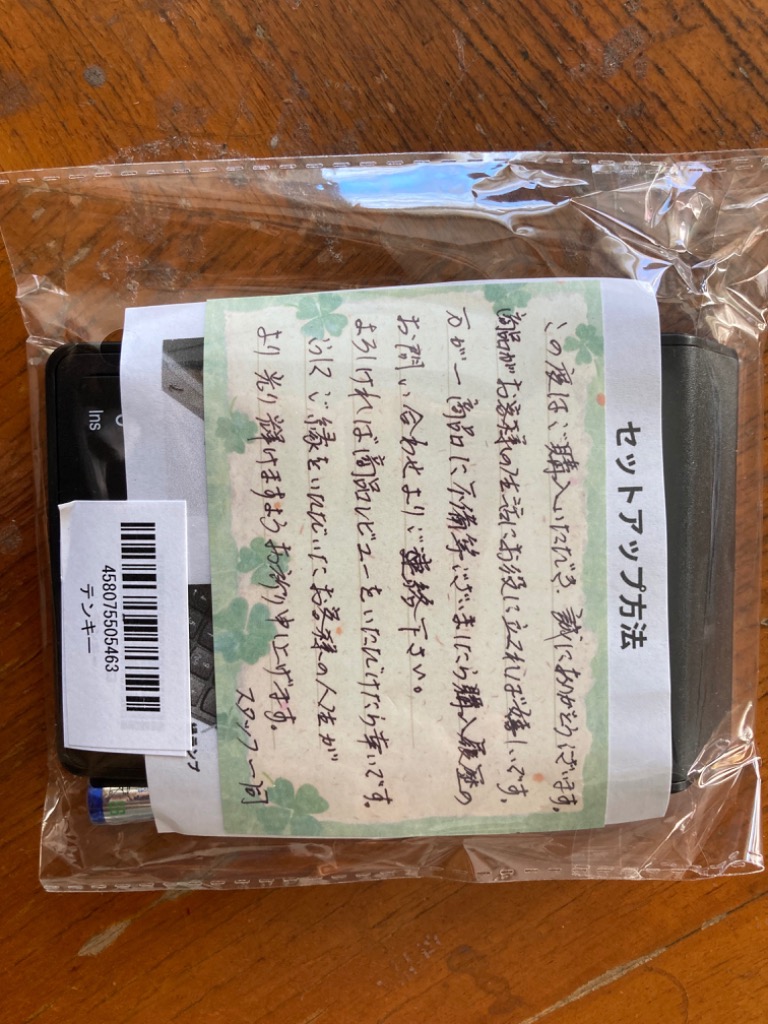 セットアップ方法
この度はご購入いただき、誠にありがとうございます。
商品がお客様の生活にお役に立てれば嬉しいです。
万が一商品に不備等ございましたら購入履歴の
お問い合わせよりご連絡下さい。
よろしければ商品レビューをいただけたら幸いです。
ご縁をいただいたお客様の人生が
より光り輝けますようお祈り申し上げます。
スタッフ一同
Ins
458075505463
テンキー